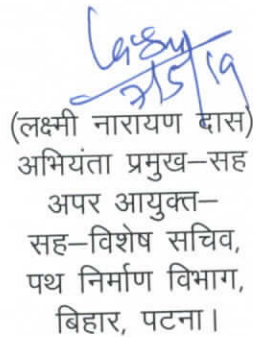 7/5/19
(लक्ष्मी नारायण दास)
अभियंता प्रमुख–सह
अपर आयुक्त–
सह–विशेष सचिव,
पथ निर्माण विभाग,
बिहार, पटना।